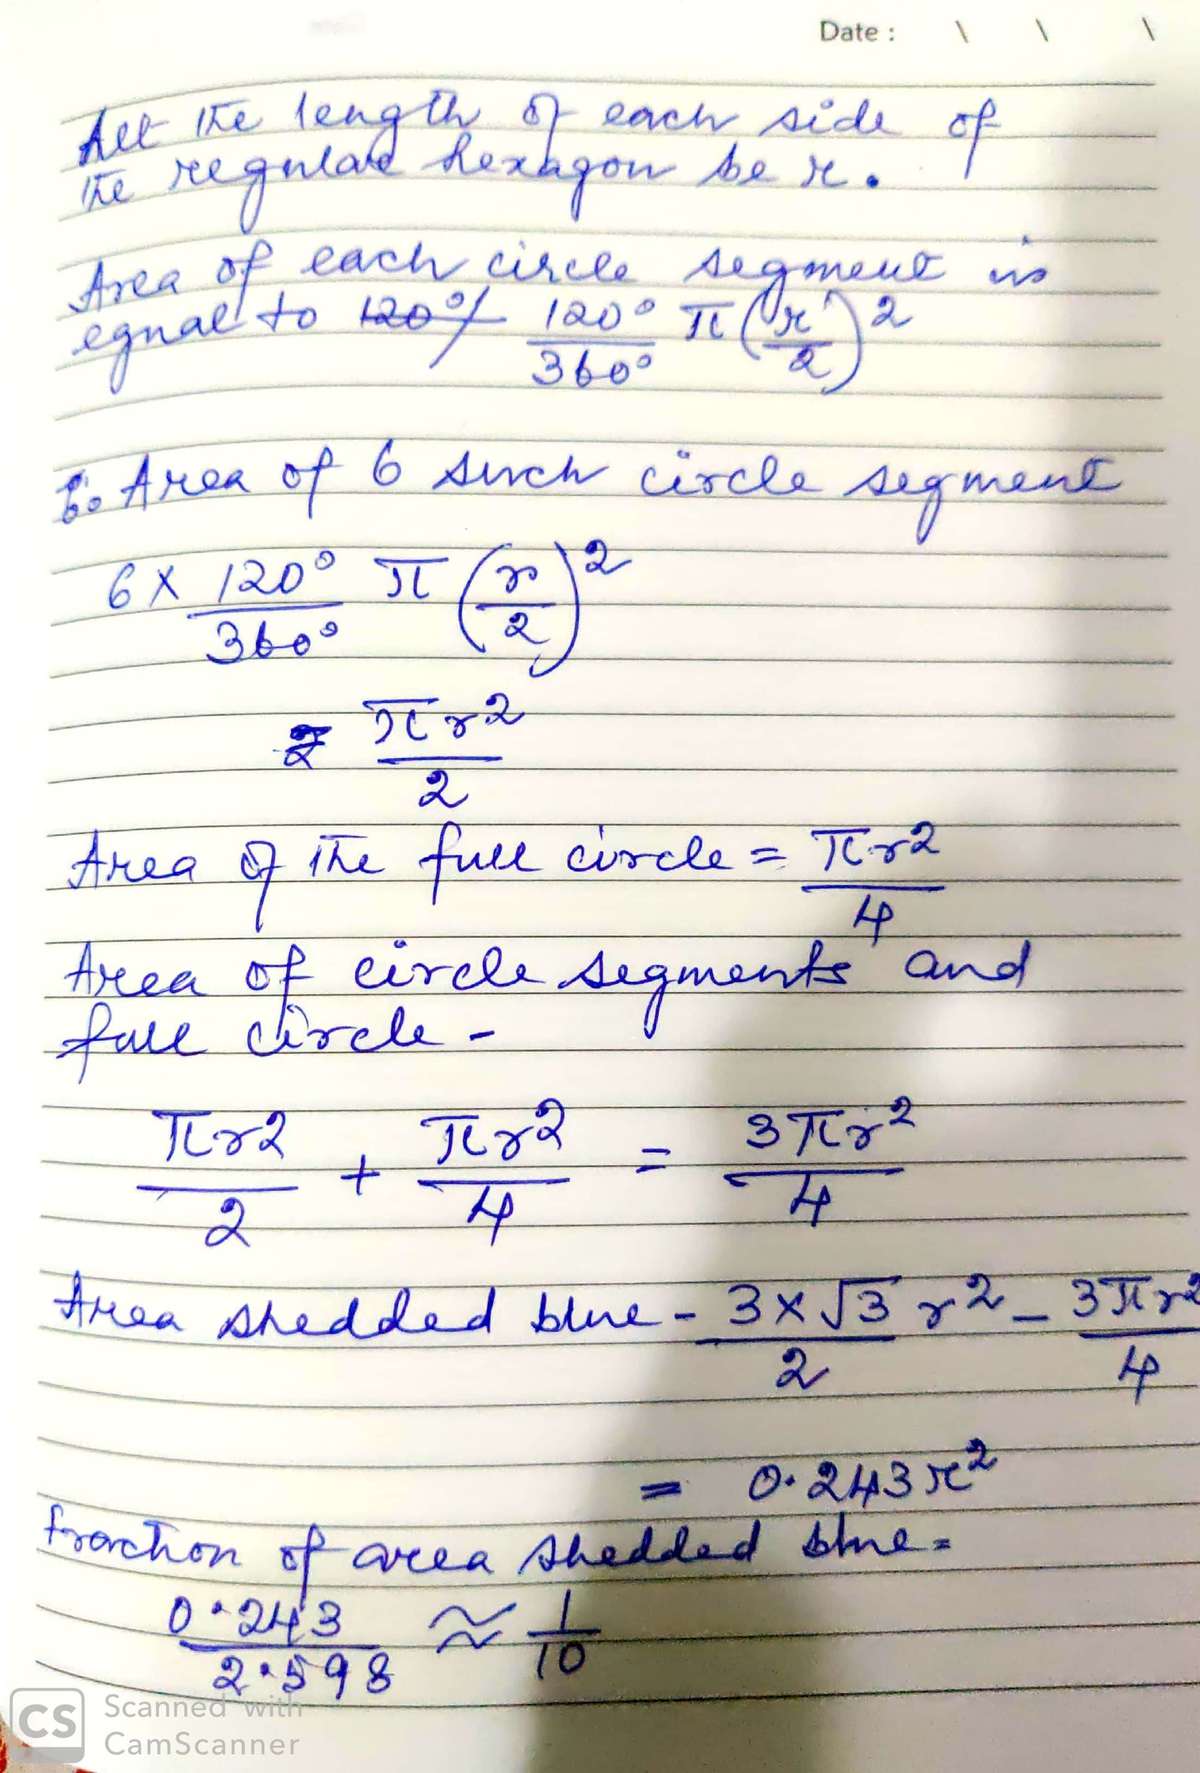 Date : \ \ \
Let the length of each side of
the regular hexagon be r.
Area of each circle segment is
equal to 120°/ 120°/360° π(r/2)²
∴ Area of 6 such circle segment
6 × 120°/360° π (r/2)²
= πr²/2
Area of the full circle = πr²/4
Area of circle segments and
full circle -
πr²/2 + πr²/4 = 3πr²/4
Area shedded blue - 3×√3/2 r² - 3πr²/4
= 0.243r²
fraction of area shedded blue =
0.243/2.598 ≈ 1/10
CS Scanned with
CamScanner